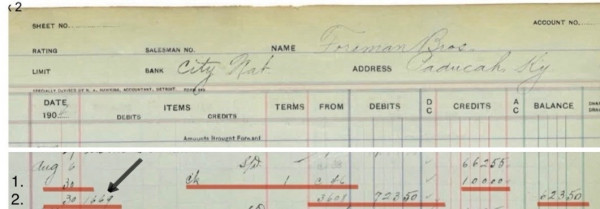 2
SHEET NO. ACCOUNT NO.
RATING SALESMAN NO. NAME Foreman Bros.
LIMIT BANK City Nat ADDRESS Paducah, Ky
DATE ITEMS TERMS FROM DEBITS DC CREDITS AC BALANCE
190 DEBITS CREDITS
Amounts Brought Forward
Aug 6 66255
1. 30 ck 1 10000
2. 30 1669 3608 72350 62350